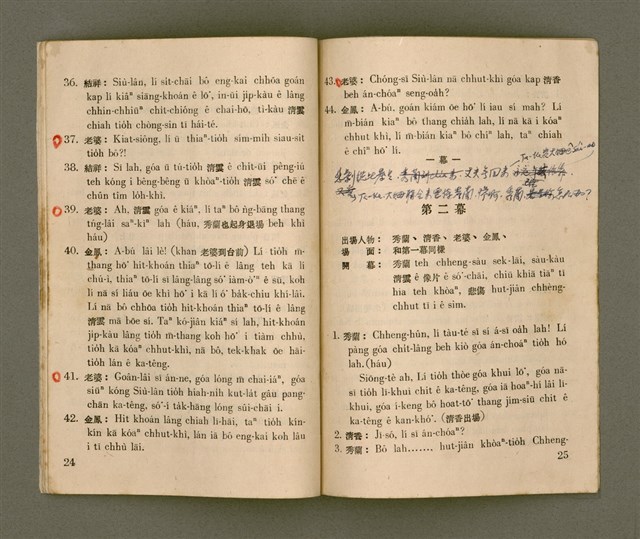 36. 結祥： Siù-lân, lí si̍t-chāi bô eng-kai chhōa goán
kap lí kiâⁿ siāng-khoán ê lō͘, in-ūi ji̍p-kàu ê lâng
chhin-chhiūⁿ chit-chióng ê chai-hō, tì-kàu 清雲
chiah tio̍h chòng-sin tī hái-té.
37. 老婆： Kiat-siông, lí ū thiaⁿ-tio̍h sím-mi̍h siau-sit
tio̍h bô?!
38. 結祥： Sī lah, góa ū tú-tio̍h 清雲 ê chi̍t-ūi pêng-iú
teh kóng i bêng-bêng ū khòaⁿ-tio̍h 清雲 só͘ chē ê
chûn tîm lo̍h-khì.
39. 老婆： Ah, 清雲 góa ê kiáⁿ, lí taⁿ bô ǹg-bāng thang
tńg-lâi saⁿ-kìⁿ lah (háu, 秀蘭也起身退場 beh khì
háu)
40. 金鳳： A-bú lâi lè! (khan 老婆到台前) Lí tio̍h m̄-
thang hō͘ hit-khoán thiaⁿ tō-lí ê lâng teh kā lí
chú-ì, thiaⁿ tō-lí sī lâng-lâng só͘ iàm-ò͘ⁿ ê sū, koh
lí nā sí liáu óe khì hō͘ i kā lí ô͘ ba̍k-chiu khì-lâi.
Lí nā bô chhōa tio̍h hit-khoán thiaⁿ tō-lí ê lâng
清雲 mā bōe sí. Taⁿ kó-jiân kiáⁿ sí lah, hit-khoán
ji̍p-kàu lâng tio̍h m̄-thang koh hō͘ i tiàm chhù,
tio̍h kā kóaⁿ chhut-khì, nā bô, tek-khak ōe hāi-
tio̍h lán ê ka-têng.
41. 老婆： Goân-lâi sī án-ne, góa lóng m̄ chai-iáⁿ, góa
siūⁿ kóng Siù-lân tio̍h hiah-ni̍h kut-la̍t gâu pang-
chān ka-têng, só͘-í ta̍k-hāng lóng sûi-chāi i.
42. 金鳳： Hit khoán lâng chiah lī-hāi, taⁿ tio̍h kín-
kín kā kóaⁿ chhut-khì, lán iā bô eng-kai koh lâu
i tī chhù lāi.
24
43. 老婆： Chóng-sī Siù-lân nā chhut-khì góa kap 清香
beh án-chóaⁿ seng-oa̍h?
44. 金鳳： A-bú, goán kiám ōe hō͘ lí iau sí mah? Lí
m̄-bián kiaⁿ bô thang chia̍h lah, lí nā kā i kóaⁿ
chhut khì, lí m̄-bián kiaⁿ bô chîⁿ lah, taⁿ chiah
ê chîⁿ hō͘ lí.
—— 一幕 ——
第二幕
出場人物： 秀蘭、清香、老婆、金鳳、
場　　面： 和第一幕同樣
開　　幕： 秀蘭 teh chheng-sàu sek-lāi, sàu-kàu
清雲 ê 像片 ê só͘-chāi, chiū khiā tiàⁿ tī
hia teh khòaⁿ, 悲傷 hut-jiân chhèng-
chhut tī i ê sim.
1. 秀蘭： Chheng-hûn, lí tàu-té sī sí á-sī oa̍h lah! Lí
pàng góa chi̍t-lâng beh kiò góa án-chóaⁿ tio̍h hó
lah.(háu)
Siōng-tè ah, Lí tio̍h thòe góa khui lō͘, góa nā-
sī tio̍h lī-khui chit ê ka-têng, góa iā hoaⁿ-hí lâi lī-
khui, góa í-keng bô hoat-tō͘ thang jím-siū chit ê
ka-têng ê kan-khó͘. (清香出場)
2. 清香： Jī-só, lí sī án-chóaⁿ?
3. 秀蘭： Bô lah....... hut-jiân khòaⁿ-tio̍h Chheng-
25